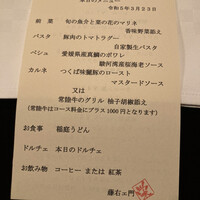 本日のメニュー
令和５年５月２３日
前菜 旬の魚介と菜の花のマリネ
香味野菜添え
パスタ 豚肉のトマトラグー
自家製生パスタ
ペシェ 愛媛県産真鯛のポワレ
駿河湾産桜海老ソース
カルネ つくば味麗豚のロースト
マスタードソース
又は
常陸牛のグリル 柚子胡椒添え
(常陸牛はコース料金にプラス1000円となります)
お食事 稲庭うどん
ドルチェ 本日のドルチェ
お飲み物 コーヒー または 紅茶
藤右ェ門